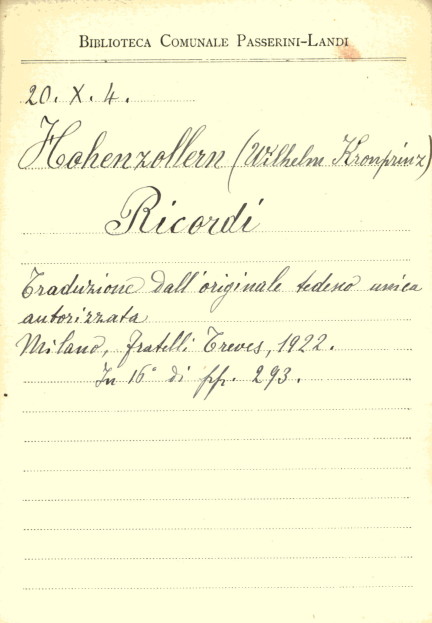 BIBLIOTECA COMUNALE PASSERINI-LANDI
20. X. 4.
Hohenzollern (Wilhelm Kronprinz)
Ricordi
Traduzione dall'originale tedesco unica
autorizzata
Milano, fratelli Treves, 1922.
In 16° di pp. 293.